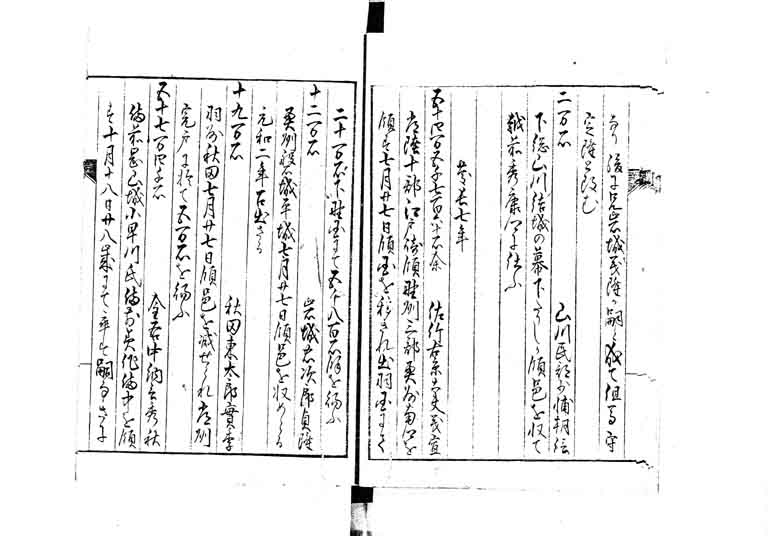 なり後に兄岩城貞隆の嗣と成て但馬守
宣隆と改む
二万石　山川民部少輔朝信
下総山川結城の幕下たりし領邑を収て
越前秀康卿に仕ふ
慶長七年
五十四万五千七百六十石余　佐竹右京大夫義宣
常陸十郡江戸崎領野州三郡奥州南郷を
領す七月廿七日領国を移され出羽国にて
二十万石下野国にて五千八百石餘を賜ふ
十二万石　岩城忠次郎貞隆
奥州磐城平城七月廿七日領邑を収めらる
元和二年召出さる
十九万石　秋田東太郎實季
羽州秋田七月廿七日領邑を減せられ常州
宍戸に於て五万石を賜ふ
五十七万四千石　金吾中納言秀秋
備前岡山城小早川氏備前美作備中を領
す十月十八日廿八歳にて卒す嗣なき